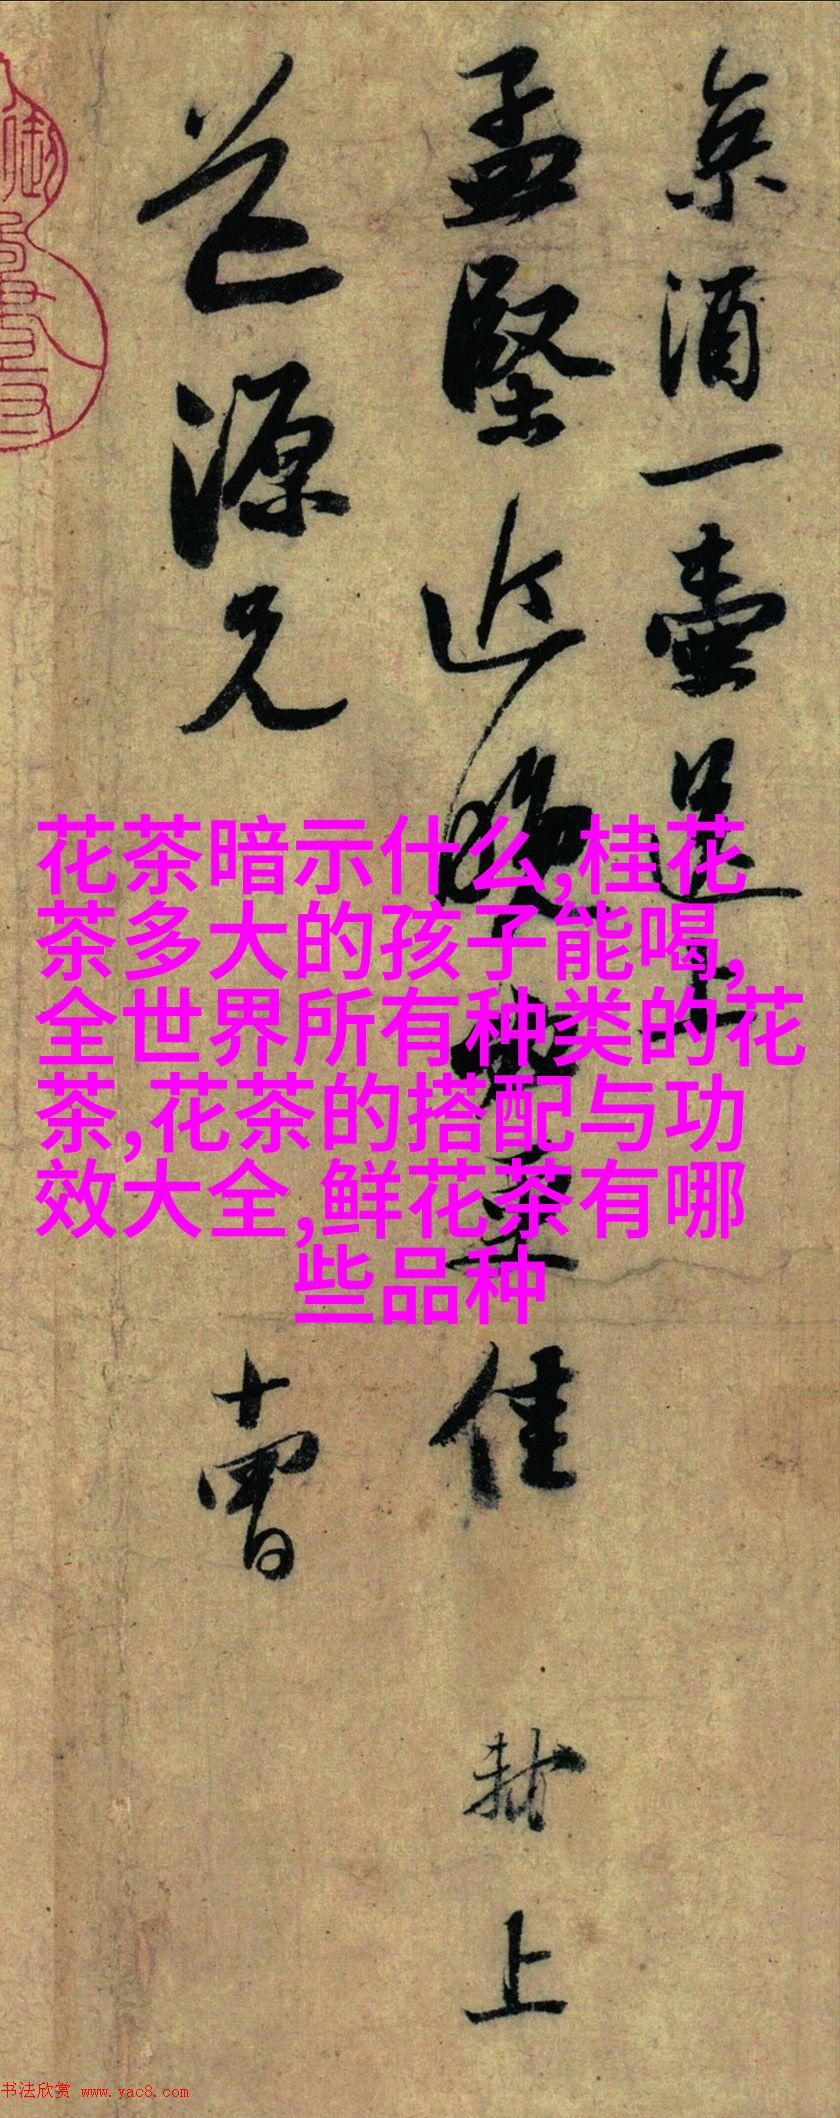 京酒一壶送上
孟坚近晚必
佳
封上
益源兄
十曹
花茶暗示什么,桂花
茶多大的孩子能喝,
全世界所有种类的花
茶,花茶的搭配与功
效大全,鲜花茶有哪
些品种
书法欣赏 www.yac8.com